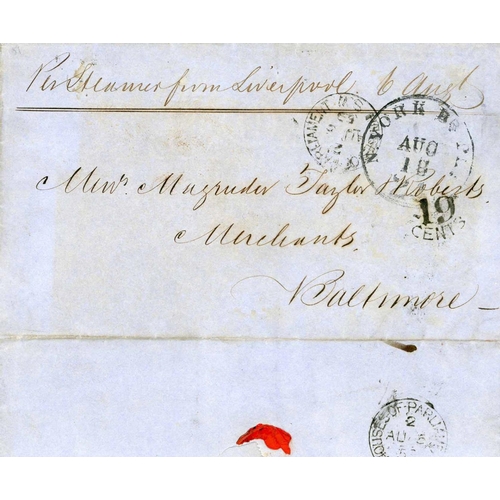 Per Steamer from Liverpool 6 Augt
NEW YORK BR. PKT.
AUG
18
19
CENTS
Messrs Magruder Taylor & Roberts
Merchants
Baltimore
HOUSES OF PARLIAMENT
2
AU 5